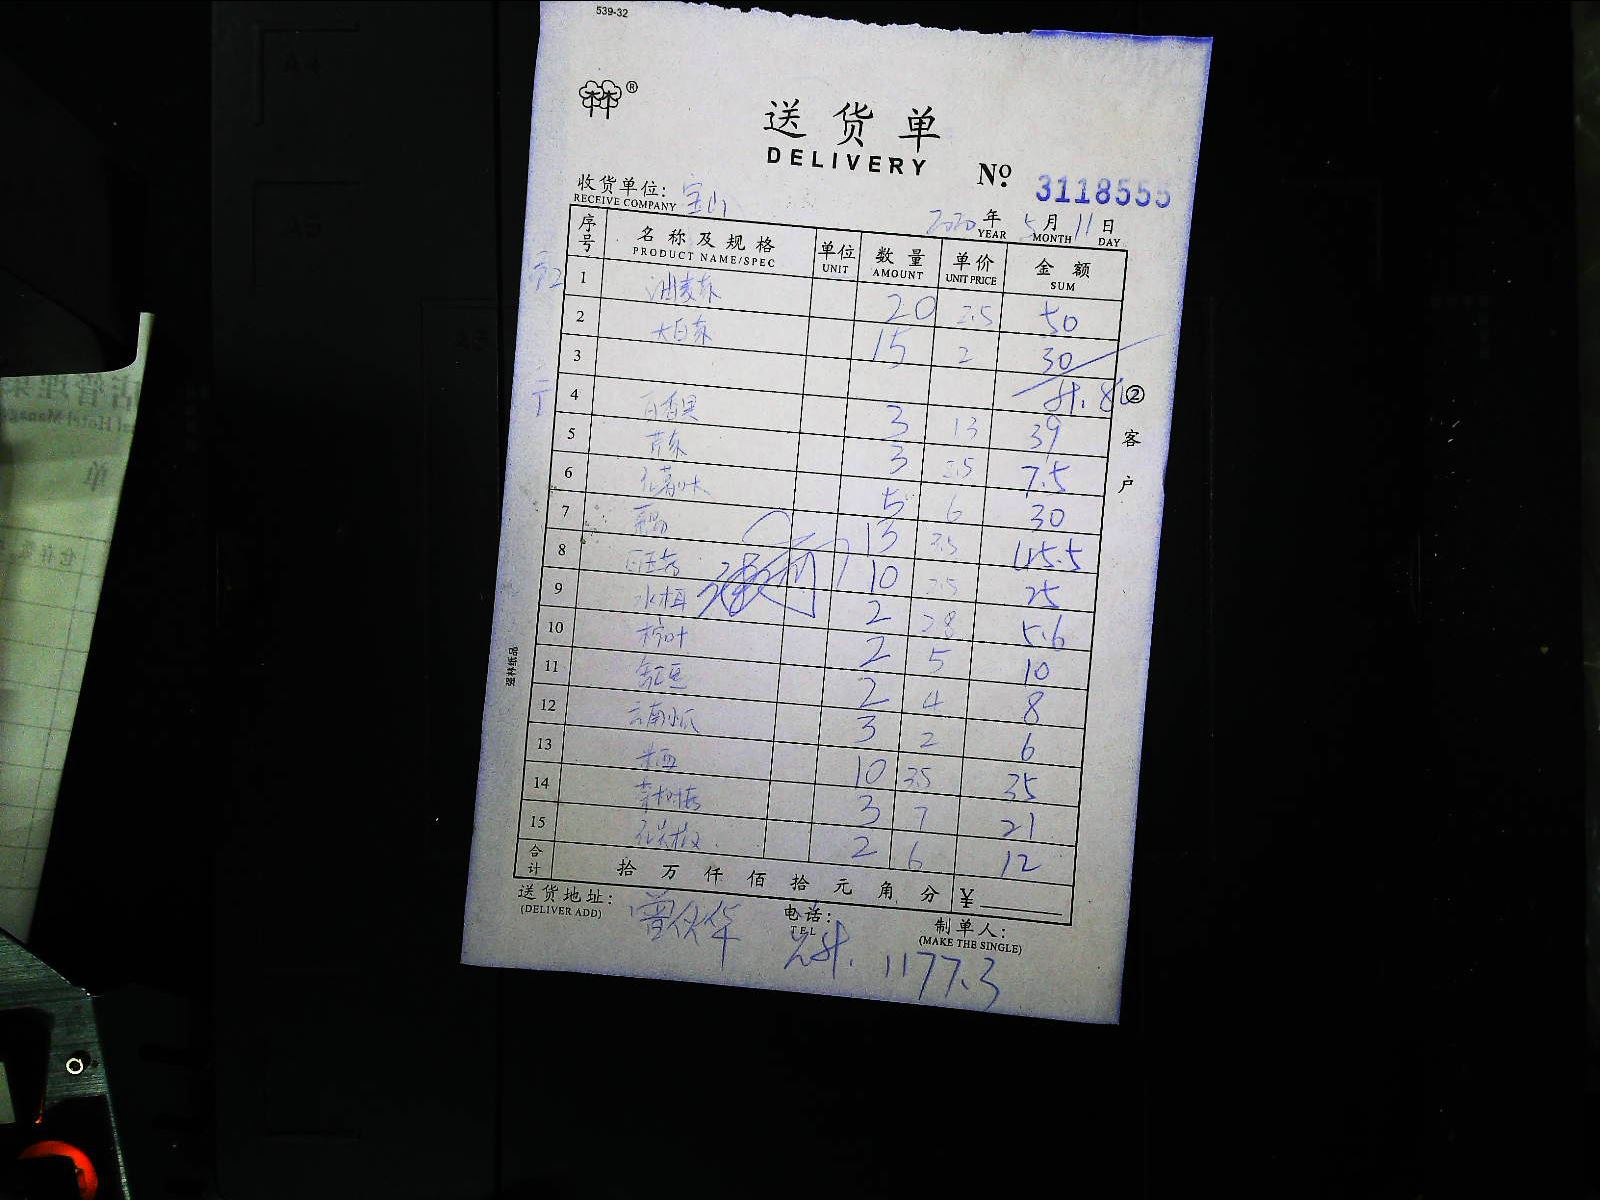 539-32
®
送货单
DELIVERY
№ 3118555
收货单位: 宝山
RECEIVE COMPANY
2020年 5月 11日
YEAR MONTH DAY
序号 名称及规格 单位 数量 单价 金额
PRODUCT NAME/SPEC UNIT AMOUNT UNIT PRICE SUM
1 油麦菜 20 2.5 50
2 大白菜 15 2 30
3 计.80
4 百香果 3 13 39
5 芹菜 3 2.5 7.5
6 5 6 30
7 13 3.5 45.5
8 10 2.5 25
9 水 2 2.8 5.6
10 柠叶 2 5 10
11 缸豆 2 4 8
12 云南小瓜 3 2 6
13 米西 10 3.5 35
14 3 7 21
15 2 6 12
合计 拾 万 仟 佰 拾 元 角 分 ¥
②客户
强林纸品
送货地址: 曾伙华
(DELIVER ADD)
电话:
TEL
制单人:
(MAKE THE SINGLE)
计. 1177.3
A4
A5
单